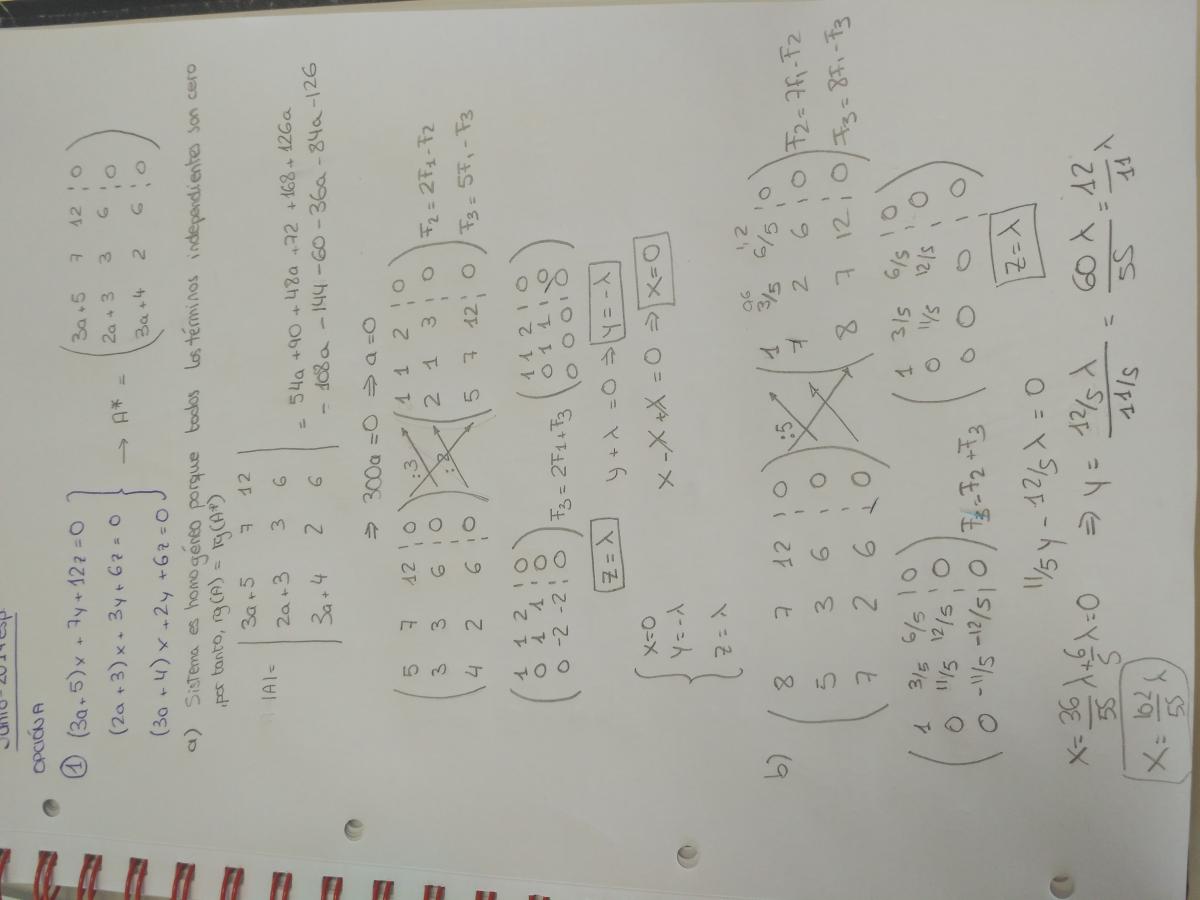 OPCIÓN A
① (3a+5)x + 7y + 12z = 0
(2a+3)x + 3y + 6z = 0 → A* = (3a+5 7 12 ¦ 0
2a+3 3 6 ¦ 0
(3a+4)x + 2y + 6z = 0 3a+4 2 6 ¦ 0)
a) Sistema es homogéneo porque todos los términos independientes son cero
, por tanto, rg(A) = rg(A*)
|A| = |3a+5 7 12
2a+3 3 6
3a+4 2 6| = 54a + 90 + 48a + 72 + 168 + 126a
- 108a - 144 - 60 - 36a - 84a - 126
⇒ 300a = 0 ⇒ a = 0
(5 7 12 ¦ 0
3 3 6 ¦ 0
4 2 6 ¦ 0) :3 :2 (1 1 2 ¦ 0
2 1 3 ¦ 0
5 7 12 ¦ 0) F2 = 2F1 - F2
F3 = 5F1 - F3
(1 1 2 ¦ 0
0 1 1 ¦ 0
0 -2 -2 ¦ 0) F3 = 2F1 + F3 (1 1 2 ¦ 0
0 1 1 ¦ 0
0 0 0 ¦ 0)
z = λ y + λ = 0 ⇒ y = -λ
x = 0
y = -λ
z = λ
x - λ + λ = 0 ⇒ x = 0
b) (8 7 12 ¦ 0
5 3 6 ¦ 0
7 2 6 ¦ 0) :5 0,6 1,2
(1 3/5 6/5 ¦ 0
7 2 6 ¦ 0
8 7 12 ¦ 0) F2 = 7F1 - F2
F3 = 8F1 - F3
(1 3/5 6/5 ¦ 0
0 11/5 12/5 ¦ 0
0 -11/5 -12/5 ¦ 0) F3 = F2 + F3 (1 3/5 6/5 ¦ 0
0 11/5 12/5 ¦ 0
0 0 0 ¦ 0)
11/5y - 12/5λ = 0 z = λ
x = 36/55 λ + 6/5 λ = 0 ⇒ y = 12/5 λ / 11/5 = 60 λ / 55 = 12/11 λ